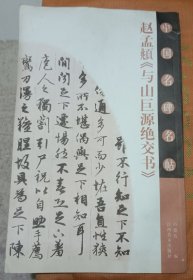 中国名碑名帖
赵孟頫《与山巨源绝交书》
雖不行知足下不知
通多可而少怪吾直性狹
多所不堪偶與足下相知耳
間聞足下遷惕然不喜恐足下羞
庖人之獨割引尸祝以自助手薦
鸞刀漫之羶腥故具為足下陳